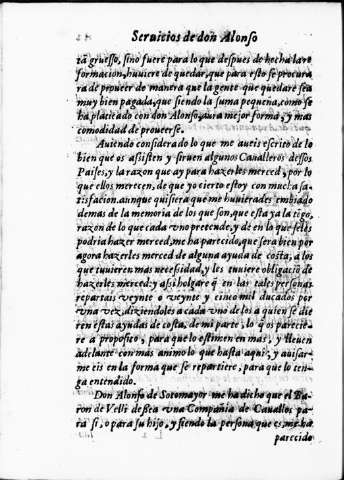 Seruicios de don Alonso
zã gruesso, sino fuere para lo que despues de hecha la re
formacion, huuiere de quedar, que para esto se procura
ra de proueer de manera que la gente que quedare sea
muy bien pagada, que siendo la suma pequeña, como se
ha platicado con don Alonso, aura mejor forma, y mas
comodidad de prouerse.
Auiendo considerado lo que me aueis escrito de lo
bien que os assisten y siruen algunos Caualleros dessos
Paises, y la razon que ay para hazerles merced, por lo
que ellos merecen, de que yo cierto estoy con mucha sa-
tisfacion, aunque quisiera que me huuierades embiado
demas de la memoria de los que son, que esta ya la tẽgo,
razon de lo que cada vno pretende, y dè en lo que se les
podria hazer merced, me ha parecido, que sera bien por
agora hazerles merced de alguna ayuda de costa, a los
que tuuieren mas necessidad, y les tuuiere obligaciõ de
hazerles merced: y assi holgare q̃ en las tales personas
repartais veynte o veynte y cinco mil ducados por
vna vez, diziendoles a cada vno de los a quien se die
ren estas ayudas de costa, de mi parte, lo q̃ os parecie-
re a proposito, para que lo estimen en mas, y lleuen
adelante con mas animo lo que hasta aqui, y auisar-
me eis en la forma que se repartiere, para que lo ten-
ga entendido.
Don Alonso de Sotomayor me ha dicho que el Ba-
ron de Velli dessea vna Compañia de Cauallos pa-
ra si, o para su hijo, y siendo la persona que es, me ha
parecido